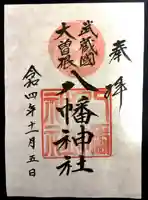 奉拝
武蔵國
大曽根
八幡神社
令和四年十一月五日